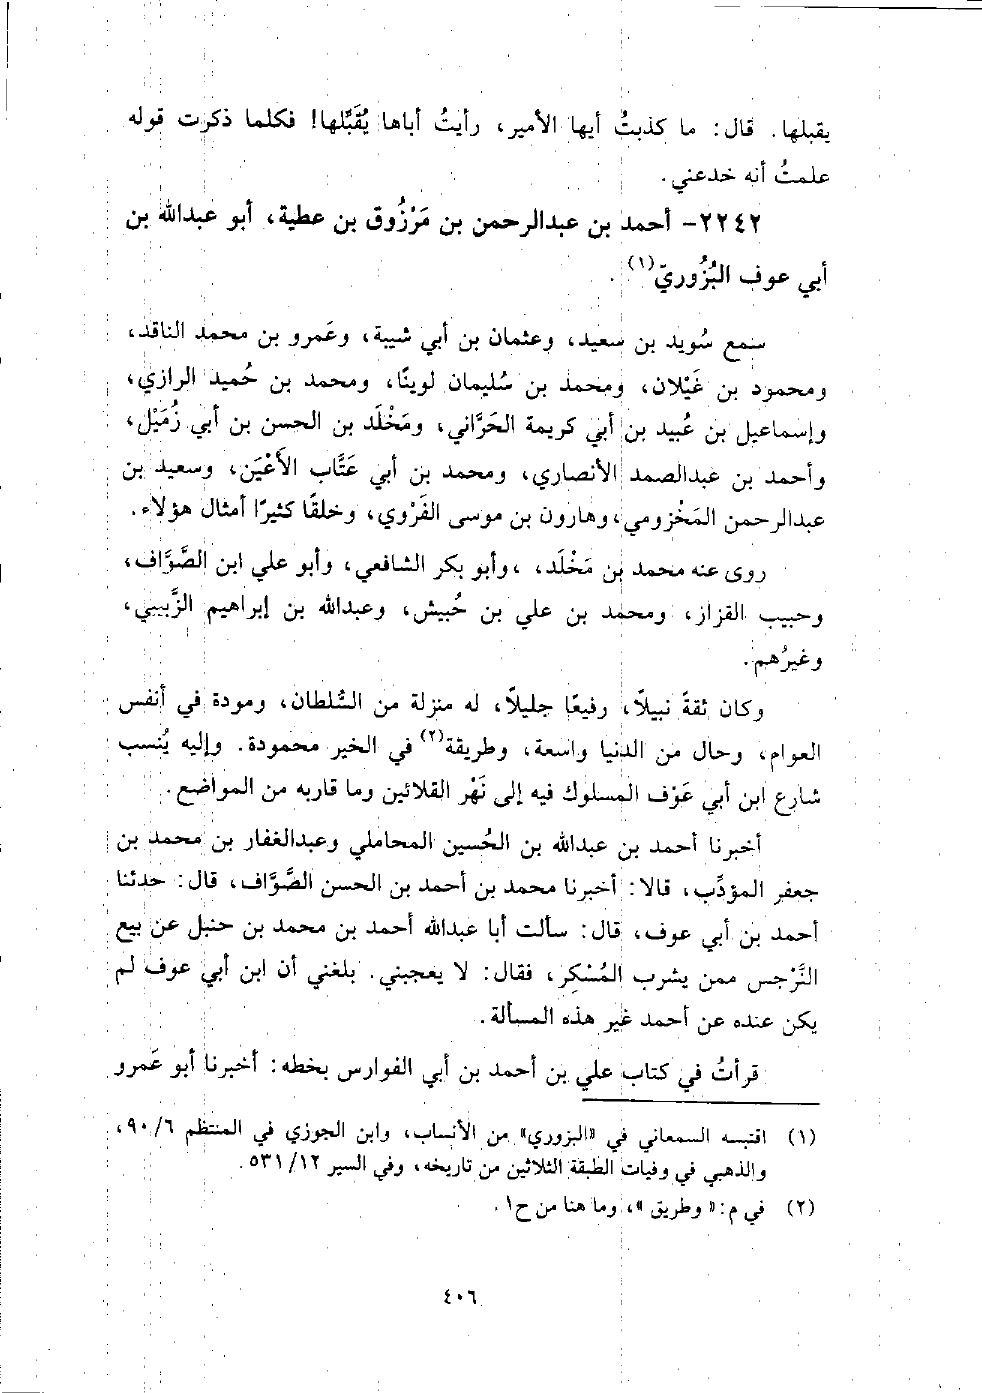 يقبلها. قال: ما كذبتُ أيها الأمير، رأيتُ أباها يُقَبِّلها! فكلما ذكرت قوله
علمتُ أنه خدعني.
٢٢٤٢- أحمد بن عبدالرحمن بن مَرْزُوق بن عطية، أبو عبدالله بن
أبي عوف البُزُوريّ(١).
سمع سُويد بن سعيد، وعثمان بن أبي شيبة، وعَمرو بن محمد الناقد،
ومحمود بن غَيْلان، ومحمد بن سُليمان لوينًا، ومحمد بن حُميد الرازي،
وإسماعيل بن عُبيد بن أبي كريمة الحَرَّاني، ومَخْلَد بن الحسن بن أبي زُمَيْل،
وأحمد بن عبدالصمد الأنصاري، ومحمد بن أبي عَتَّاب الأَعْيَن، وسعيد بن
عبدالرحمن المَخْزومي، وهارون بن موسى الفَرْوي، وخلقًا كثيرًا أمثال هؤلاء.
روى عنه محمد بن مَخْلَد، وأبو بكر الشافعي، وأبو علي ابن الصَّوَّاف،
وحبيب القزاز، ومحمد بن علي بن حُبيش، وعبدالله بن إبراهيم الزَّبيبي،
وغيرُهم.
وكان ثقةً نبيلاً، رفيعًا جليلاً، له منزلة من السُّلطان، ومودة في أنفس
العوام، وحال من الدنيا واسعة، وطريقة(٢) في الخير محمودة. وإليه يُنسب
شارع ابن أبي عَوْف المسلوك فيه إلى نَهْر القلائين وما قاربه من المواضع.
أخبرنا أحمد بن عبدالله بن الحُسين المحاملي وعبدالغفار بن محمد بن
جعفر المؤدِّب، قالا: أخبرنا محمد بن أحمد بن الحسن الصَّوَّاف، قال: حدثنا
أحمد بن أبي عوف، قال: سألت أبا عبدالله أحمد بن محمد بن حنبل عن بيع
النَّرْجس ممن يشرب المُسْكِر، فقال: لا يعجبني. بلغني أن ابن أبي عوف لم
يكن عنده عن أحمد غير هذه المسألة.
قرأتُ في كتاب علي بن أحمد بن أبي الفوارس بخطه: أخبرنا أبو عَمرو
(١) اقتبسه السمعاني في «البزوري» من الأنساب، وابن الجوزي في المنتظم ٦/ ٩٠،
والذهبي في وفيات الطبقة الثلاثين من تاريخه، وفي السير ١٢/ ٥٣١.
(٢) في م: «وطريق»، وما هنا من ح١.
٤٠٦